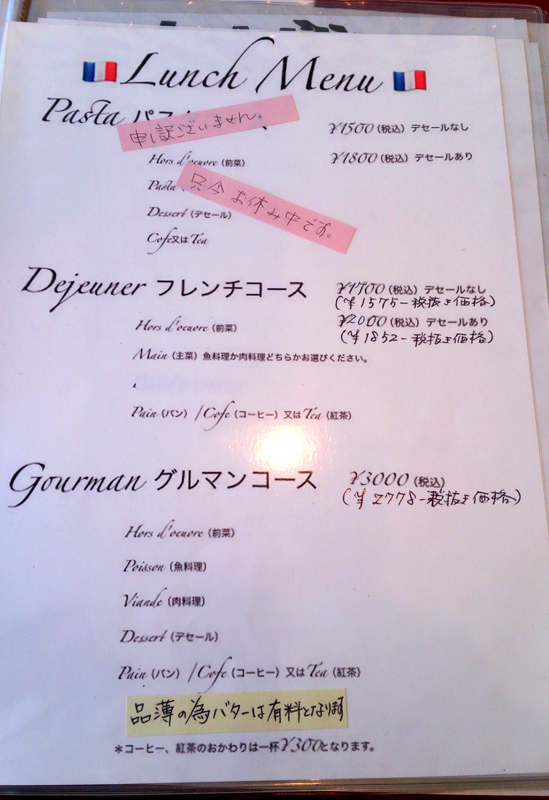 Lunch Menu
Pasta
申し訳ございません。
¥1500（税込）デセールなし
Hors d'oeuore（前菜）
¥1800（税込）デセールあり
Pasta
只今お休み中です。
Dessert（デセール）
Cofe又はTea
Dejeuner フレンチコース
¥1700（税込）デセールなし
（¥1575-税抜き価格）
Hors d'oeuore（前菜）
¥2000（税込）デセールあり
（¥1852-税抜き価格）
Main（主菜）魚料理か肉料理どちらかお選びください。
Pain（パン）/Cofe（コーヒー）又はTea（紅茶）
Gourman グルマンコース
¥3000（税込）
（¥2778-税抜き価格）
Hors d'oeuore（前菜）
Poisson（魚料理）
Viande（肉料理）
Dessert（デセール）
Pain（パン）/Cofe（コーヒー）又はTea（紅茶）
品薄の為バターは有料となります
＊コーヒー、紅茶のおかわりは一杯¥300となります。